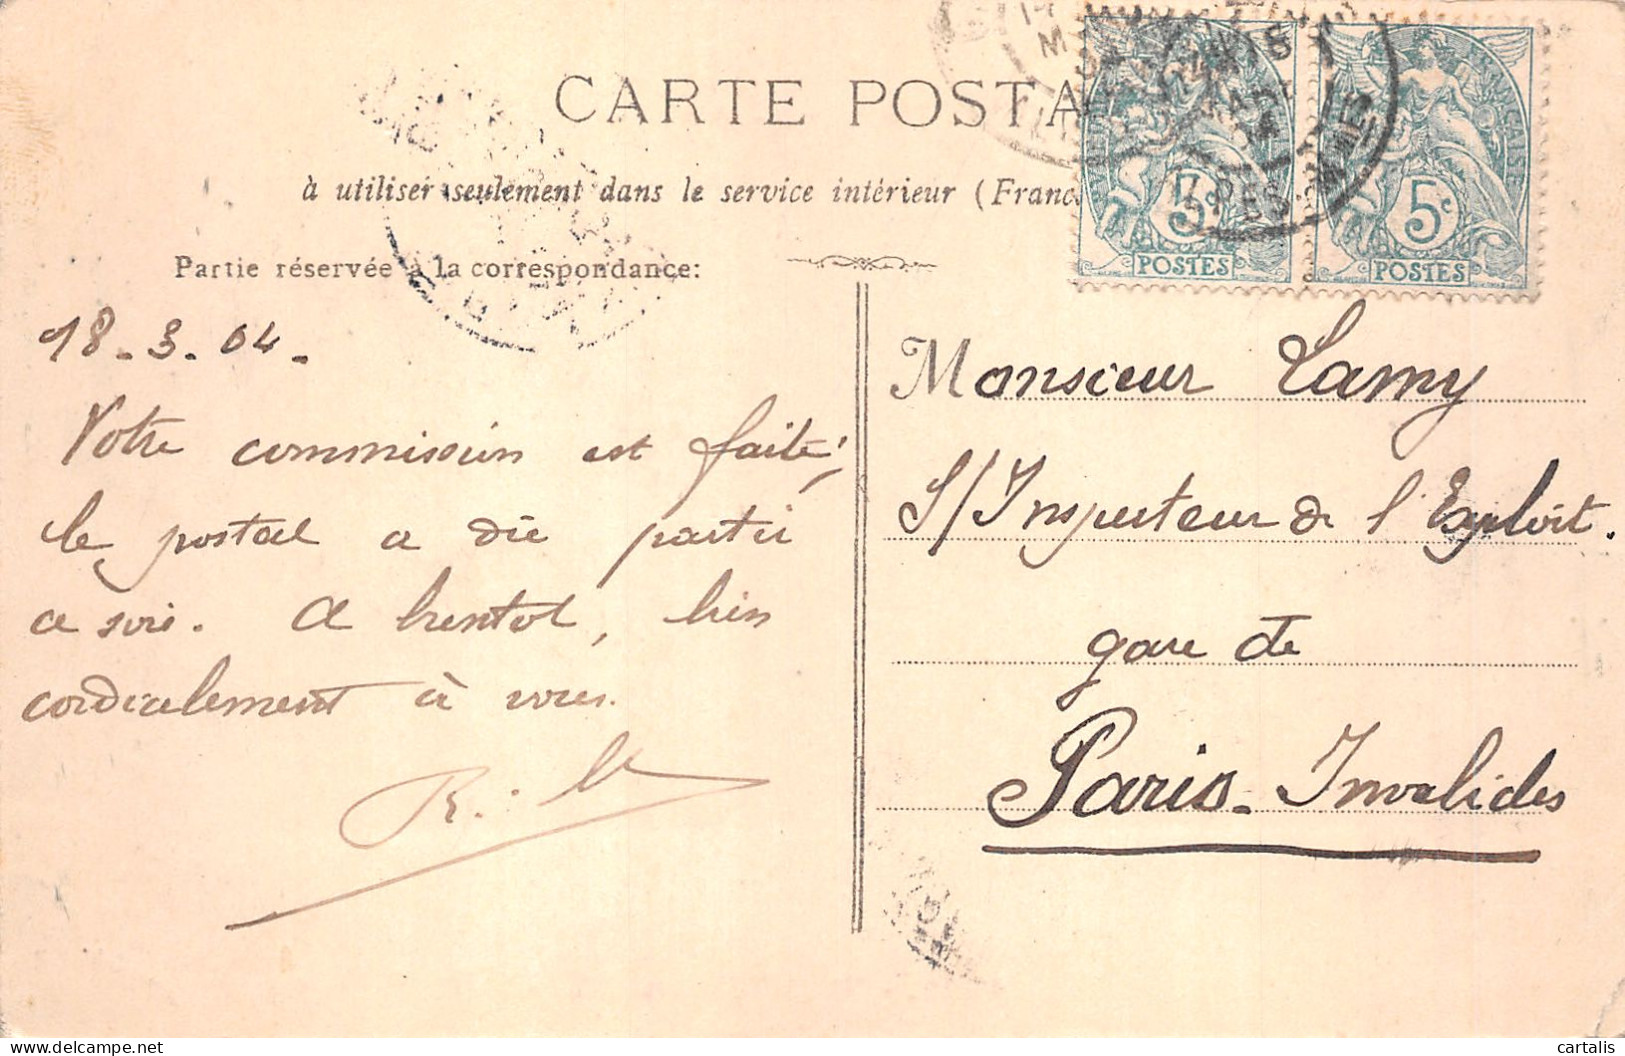 CARTE POSTA
à utiliser seulement dans le service intérieur (Franc
Partie réservée à la correspondance:
18-3-04-
Votre commission est faite;
le postal a dû partir
ce soir. A bientôt, bien
cordialement à vous.
Monsieur Lamy
S/Inspecteur de l'Exploit.
gare de
Paris-Invalides
5c
POSTES
5c
POSTES
cartalis